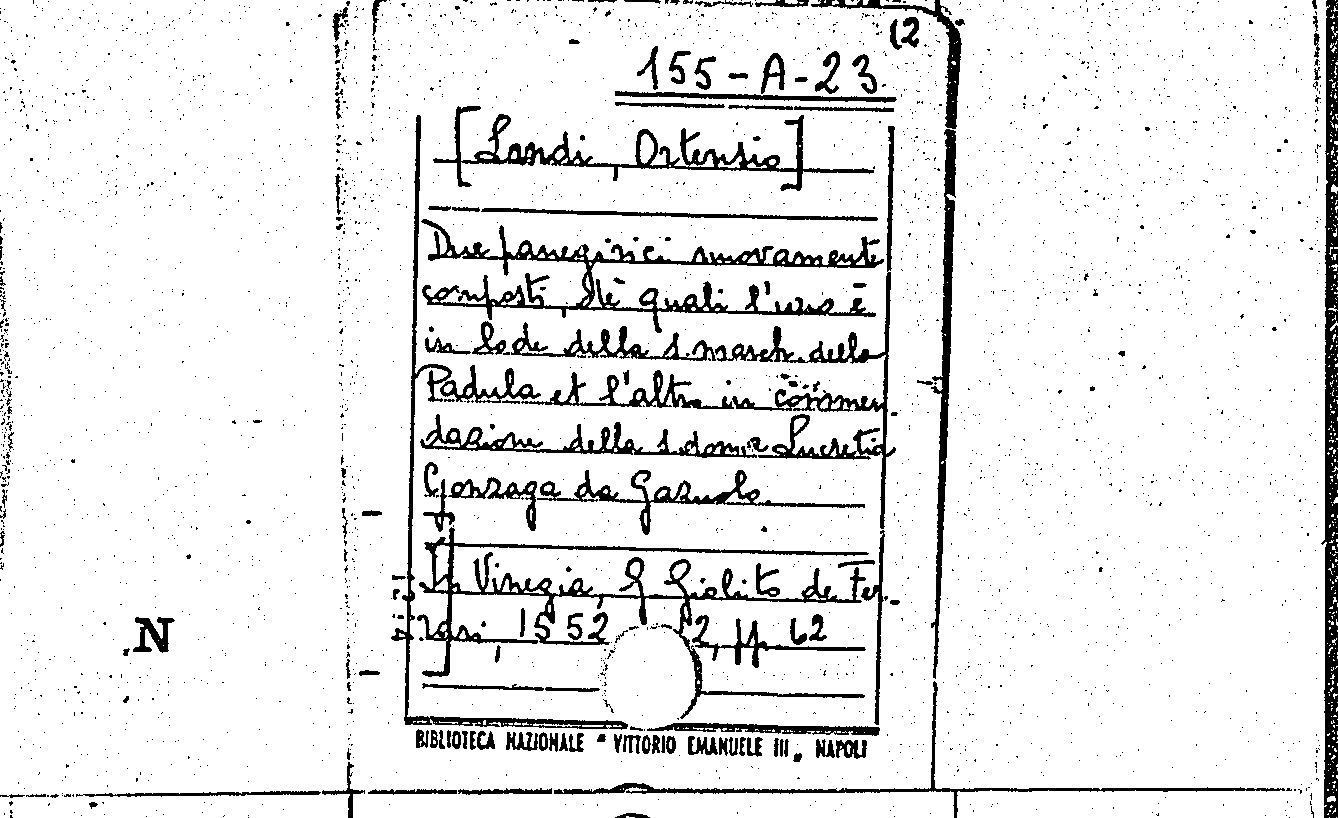 12
155-A-23
[Landi, Ortensio]
Due panegirici nuovamente
composti, de' quali l'uno è
in lode della s. march. della
Padula et l'altro in commen-
dazione della s. donna Lucretia
Gonzaga da Gazuolo.
In Vinegia, G Giolito de Fer-
rari, 1552 12, pp. 62
N
BIBLIOTECA NAZIONALE "VITTORIO EMANUELE III„ NAPOLI